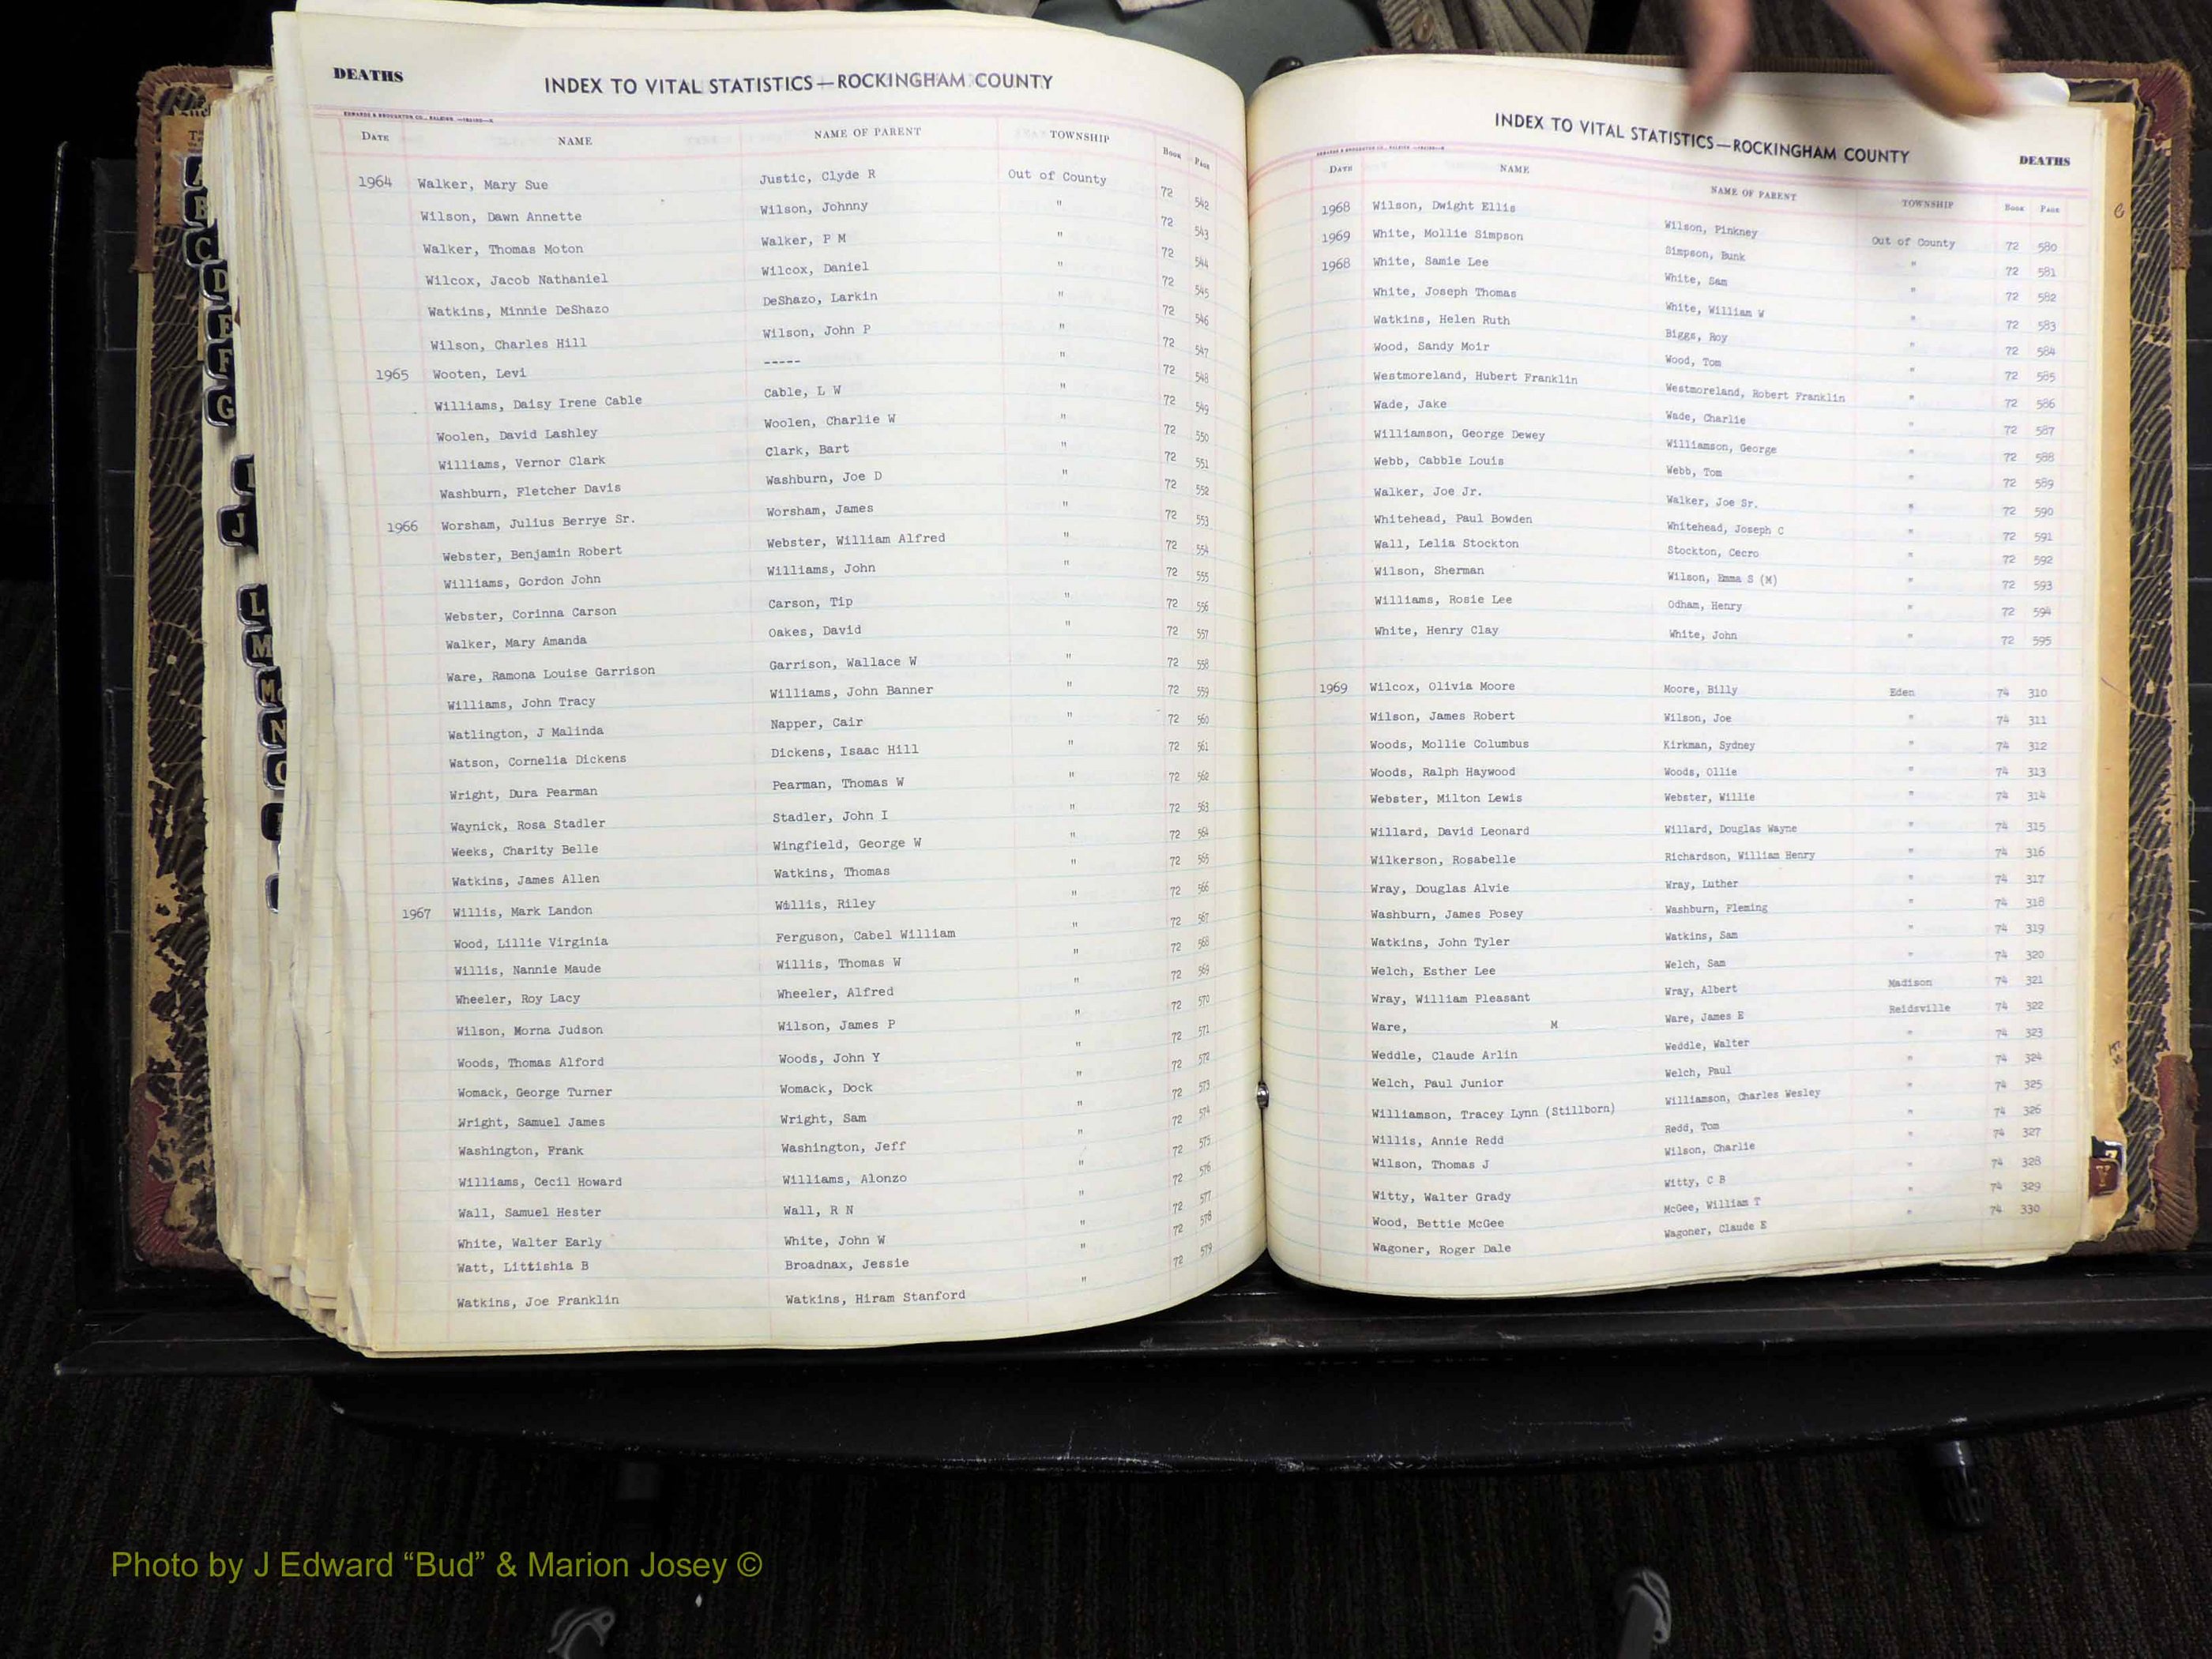 DEATHS
INDEX TO VITAL STATISTICS—ROCKINGHAM COUNTY
EDWARDS & BROUGHTON CO., RALEIGH
DATE NAME NAME OF PARENT TOWNSHIP BOOK PAGE
1964 Walker, Mary Sue Justic, Clyde R Out of County 72 542
Wilson, Dawn Annette Wilson, Johnny " 72 543
Walker, Thomas Moton Walker, P M " 72 544
Wilcox, Jacob Nathaniel Wilcox, Daniel " 72 545
Watkins, Minnie DeShazo DeShazo, Larkin " 72 546
Wilson, Charles Hill Wilson, John P " 72 547
1965 Wooten, Levi ----- " 72 548
Williams, Daisy Irene Cable Cable, L W " 72 549
Woolen, David Lashley Woolen, Charlie W " 72 550
Williams, Vernor Clark Clark, Bart " 72 551
Washburn, Fletcher Davis Washburn, Joe D " 72 552
1966 Worsham, Julius Berrye Sr. Worsham, James " 72 553
Webster, Benjamin Robert Webster, William Alfred " 72 554
Williams, Gordon John Williams, John " 72 555
Webster, Corinna Carson Carson, Tip " 72 556
Walker, Mary Amanda Oakes, David " 72 557
Ware, Ramona Louise Garrison Garrison, Wallace W " 72 558
Williams, John Tracy Williams, John Banner " 72 559
Watlington, J Malinda Napper, Cair " 72 560
Watson, Cornelia Dickens Dickens, Isaac Hill " 72 561
Wright, Dura Pearman Pearman, Thomas W " 72 562
Waynick, Rosa Stadler Stadler, John I " 72 563
Weeks, Charity Belle Wingfield, George W " 72 564
Watkins, James Allen Watkins, Thomas " 72 565
1967 Willis, Mark Landon Willis, Riley " 72 566
Wood, Lillie Virginia Ferguson, Cabel William " 72 567
Willis, Nannie Maude Willis, Thomas W " 72 568
Wheeler, Roy Lacy Wheeler, Alfred " 72 569
Wilson, Morna Judson Wilson, James P " 72 570
Woods, Thomas Alford Woods, John Y " 72 571
Womack, George Turner Womack, Dock " 72 572
Wright, Samuel James Wright, Sam " 72 573
Washington, Frank Washington, Jeff " 72 574
Williams, Cecil Howard Williams, Alonzo " 72 575
Wall, Samuel Hester Wall, R N " 72 576
White, Walter Early White, John W " 72 577
Watt, Littishia B Broadnax, Jessie " 72 578
Watkins, Joe Franklin Watkins, Hiram Stanford " 72 579
INDEX TO VITAL STATISTICS—ROCKINGHAM COUNTY
DEATHS
DATE NAME NAME OF PARENT TOWNSHIP BOOK PAGE
1968 Wilson, Dwight Ellis Wilson, Pinkney Out of County 72 580
1969 White, Mollie Simpson Simpson, Bunk " 72 581
1968 White, Samie Lee White, Sam " 72 582
White, Joseph Thomas White, William W " 72 583
Watkins, Helen Ruth Biggs, Roy " 72 584
Wood, Sandy Moir Wood, Tom " 72 585
Westmoreland, Hubert Franklin Westmoreland, Robert Franklin " 72 586
Wade, Jake Wade, Charlie " 72 587
Williamson, George Dewey Williamson, George " 72 588
Webb, Cabble Louis Webb, Tom " 72 589
Walker, Joe Jr. Walker, Joe Sr. " 72 590
Whitehead, Paul Bowden Whitehead, Joseph C " 72 591
Wall, Lelia Stockton Stockton, Cecro " 72 592
Wilson, Sherman Wilson, Emma S (M) " 72 593
Williams, Rosie Lee Odham, Henry " 72 594
White, Henry Clay White, John " 72 595
1969 Wilcox, Olivia Moore Moore, Billy Eden 74 310
Wilson, James Robert Wilson, Joe " 74 311
Woods, Mollie Columbus Kirkman, Sydney " 74 312
Woods, Ralph Haywood Woods, Ollie " 74 313
Webster, Milton Lewis Webster, Willie " 74 314
Willard, David Leonard Willard, Douglas Wayne " 74 315
Wilkerson, Rosabelle Richardson, William Henry " 74 316
Wray, Douglas Alvie Wray, Luther " 74 317
Washburn, James Posey Washburn, Fleming " 74 318
Watkins, John Tyler Watkins, Sam " 74 319
Welch, Esther Lee Welch, Sam " 74 320
Wray, William Pleasant Wray, Albert Madison 74 321
Ware, M Ware, James E Reidsville 74 322
Weddle, Claude Arlin Weddle, Walter " 74 323
Welch, Paul Junior Welch, Paul " 74 324
Williamson, Tracey Lynn (Stillborn) Williamson, Charles Wesley " 74 325
Willis, Annie Redd Redd, Tom " 74 326
Wilson, Thomas J Wilson, Charlie " 74 327
Witty, Walter Grady Witty, C B " 74 328
Wood, Bettie McGee McGee, William T " 74 329
Wagoner, Roger Dale Wagoner, Claude E " 74 330
B
C
D
E
F
G
J
L
M
Mc
N
Y
Photo by J Edward “Bud” & Marion Josey ©